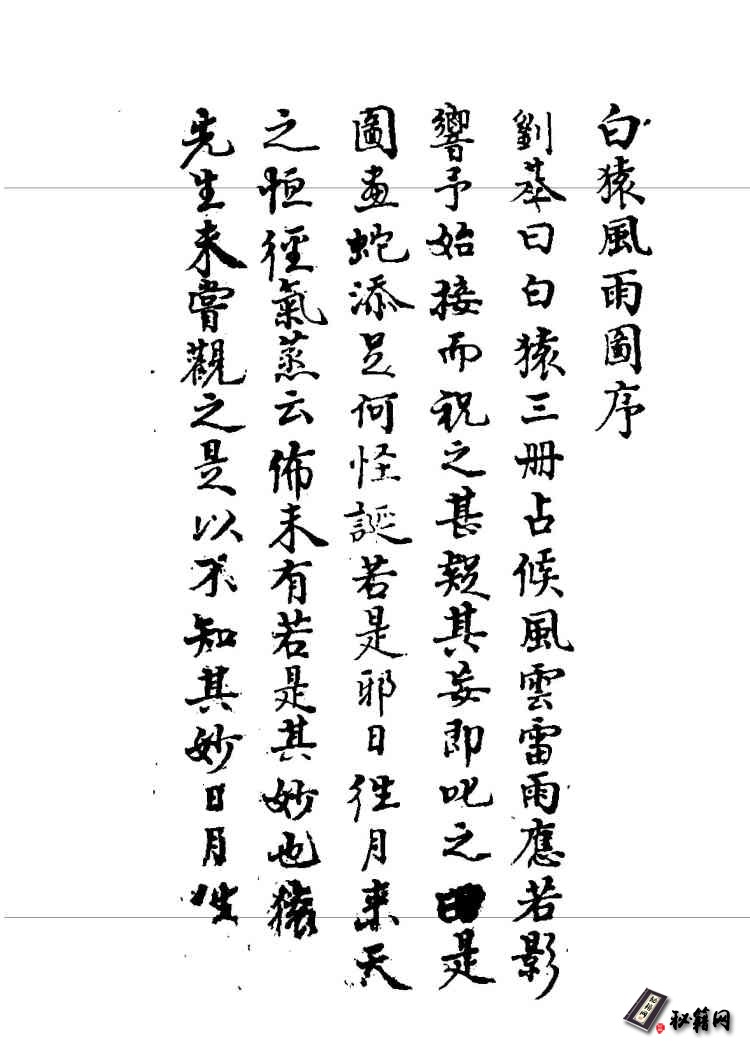 白猿風雨圖序
劉基曰白猿三册占候風雲雷雨應若影
響予始接而視之甚疑其妄即叱之曰是
圖畫蛇添足何怪誕若是耶日徃月來天
之恒徑氣蒸云佈未有若是其妙也猿
先生未嘗觀之是以不知其妙日月徃
秘籍网